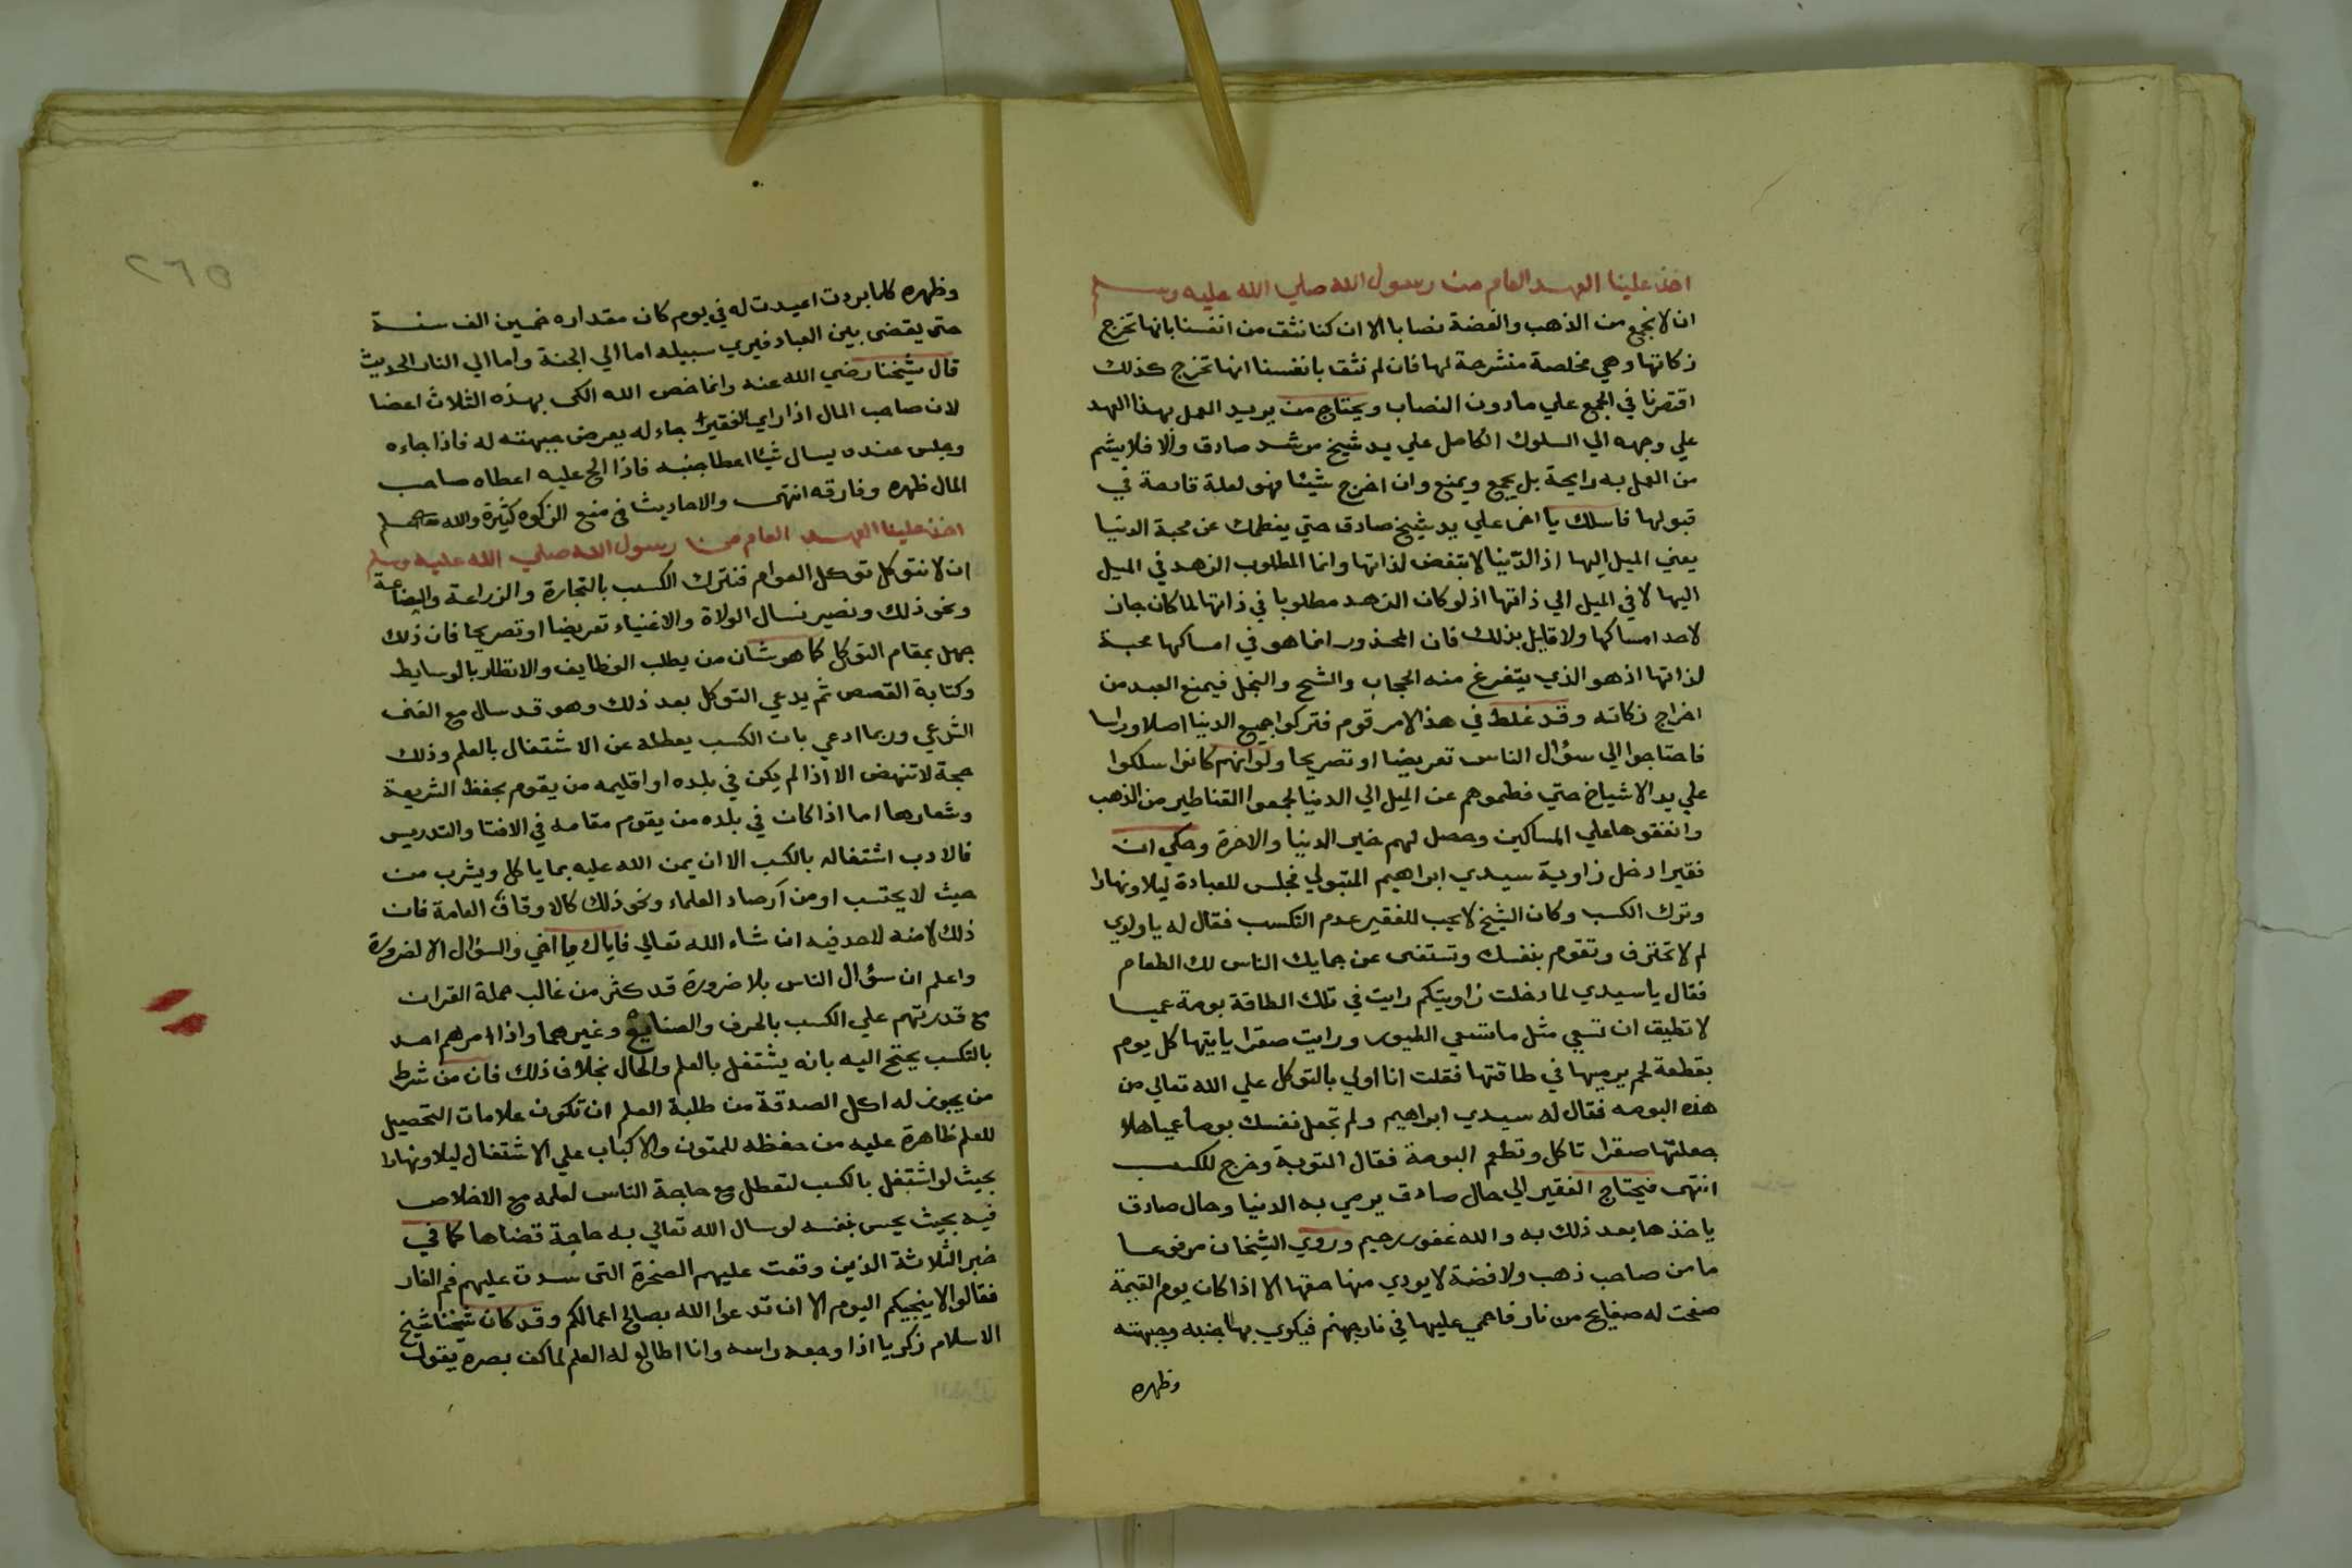 اخذ علينا العهد العام من رسول الله صلي الله عليه وسلم
ان لا نجمع من الذهب والفضة نصابا الا ان كنا نثق من انفسنا بانها تخرج
زكاتها وهي مخلصة منشرحة لها فان لم نثق بانفسنا انها تخرج كذلك
اقتصرنا في الجمع علي ما دون النصاب ويحتاج من يريد العمل بهذا العهد
علي وجهه الي السلوك الكامل علي يد شيخ مرشد صادق والا فلا يشم
من العمل به رايحة بل يجمع ويمنع وان اخرج شيئا فهو لعلة قادحة في
قبولها فاسلك يا اخي علي يد شيخ صادق حتي يفطمك عن محبة الدنيا
يعني الميل اليها اذ الدنيا لا تبغض لذاتها وانما المطلوب الزهد في الميل
اليها لا في الميل الي ذاتها اذ لو كان الزهد مطلوبا في ذاتها لما كان جاز
لاحد امساكها ولا قايل بذلك فان المحذور انما هو في امساكها محبة
لذاتها اذ هو الذي يتفرغ منه الحجاب والشح والبخل فيمنع العبد من
اخراج زكاته وقد غلط في هذا الامر قوم فتركوا جميع الدنيا اصلا وراسا
فاحتاجوا الي سؤال الناس تعريضا او تصريحا ولو انهم كانوا سلكوا
علي يد الاشياخ حتي فطموهم عن الميل الي الدنيا لجمعوا القناطير من الذهب
وانفقوها علي المساكين وحصل لهم خير الدنيا والاخرة وحكي ان
فقيرا دخل زاوية سيدي ابراهيم المتبولي فجلس للعبادة ليلا ونهارا
وترك الكسب وكان الشيخ لا يحب للفقير عدم التكسب فقال له يا ولدي
لم لا تحترف وتقوم بنفسك وتستغني عن جمايك الناس لك الطعام
فقال يا سيدي لما دخلت زاويتكم رايت في تلك الطاقة بومة عميا
لا تطيق ان تسعي مثل ما تسعي الطيور ورايت صقرا ياتيها كل يوم
بقطعة لحم يرميها في طاقتها فقلت انا اولي بالتوكل علي الله تعالي من
هذه البومه فقال له سيدي ابراهيم ولم تجعل نفسك بوما عميا هلا
جعلتها صقرا تاكل وتطعم البومة فقال التوبة وخرج للكسب
انتهي فيحتاج الفقير الي حال صادق يرمي به الدنيا وحال صادق
ياخذها بعد ذلك به والله غفور رحيم وروي الشيخان مرفوعا
ما من صاحب ذهب ولا فضة لا يودي منها حقها الا اذا كان يوم القيمة
صفحت له صفايح من نار فاحمي عليها في نار جهنم فيكوي بها جنبه وجبهته
وظهره
٢٦٥
وظهره كلما بردت اعيدت له في يوم كان مقداره خمسين الف سنة
حتي يقضي بين العباد فيري سبيله اما الي الجنة واما الي النار الحديث
قال شيخنا رضي الله عنه وانما خص الله الكي بهذه الثلاث اعضا
لان صاحب المال اذا راي الفقير جاء له يعرض جبهته له فاذا جاءه
وجلس عنده يسال شيئا اعطا جنبه فاذا الح عليه اعطاه صاحب
المال ظهره وفارقه انتهي والاحاديث في منع الزكوه كثيرة والله اعلم
اخذ علينا العهد العام من رسول الله صلي الله عليه وسلم
ان لا نتوكل توكل العوام فنترك الكسب بالتجارة والزراعة والبضاعة
ونحو ذلك ونصير نسال الولاة والاغنياء تعريضا او تصريحا فان ذلك
جهل بمقام التوكل كما هو شان من يطلب الوظايف والانظار بالوسايط
وكتابة القصص ثم يدعي التوكل بعد ذلك وهو قد سال مع الغنى
الشرعي وربما ادعي بان الكسب يعطله عن الاشتغال بالعلم وذلك
حجة لا تنهض الا اذا لم يكن في بلده او اقليمه من يقوم بحفظ الشريعة
وشعارها اما اذا كان في بلده من يقوم مقامه في الافتا والتدريس
فالادب اشتغاله بالكسب الا ان يمن الله عليه بما ياكل ويشرب من
حيث لا يحتسب او من ارصاد العلماء ونحو ذلك كالاوقاف العامة فان
ذلك لا منه لاحد فيه ان شاء الله تعالي فاياك يا اخي والسؤال الا لضرورة
واعلم ان سؤال الناس بلا ضرورة قد كثر من غالب حملة القران
مع قدرتهم علي الكسب بالحرف والصنايع وغيرهما واذا امرهم احد
بالتكسب يحتج اليه بانه يشتغل بالعلم والحال بخلاف ذلك فان من شرط
من يجوز له اكل الصدقة من طلبة العلم ان تكون علامات التحصيل
للعلم ظاهرة عليه من حفظه للمتون والاكباب علي الاشتغال ليلا ونهارا
بحيث لو اشتغل بالكسب لتعطل مع حاجة الناس لعلمه مع الاخلاص
فيه بحيث يحس بنفسه لو سال الله تعالي به حاجة قضاها كما في
خبر الثلاثة الذين وقعت عليهم الصخرة التي سدت عليهم فم الغار
فقالوا لا ينجيكم اليوم الا ان تدعوا الله بصالح اعمالكم وقد كان شيخنا شيخ
الاسلام زكريا اذا وجعه راسه وانا اطالع له العلم لما كف بصره يقول